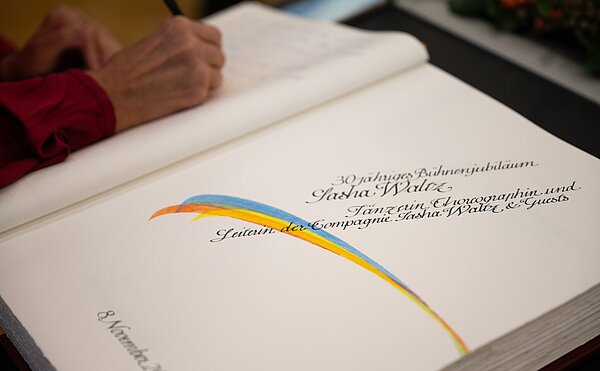 30 jähriges Bühnenjubiläum
Sasha Waltz
Tänzerin, Choreographin und
Leiterin der Compagnie Sasha Waltz & Guests
8. November